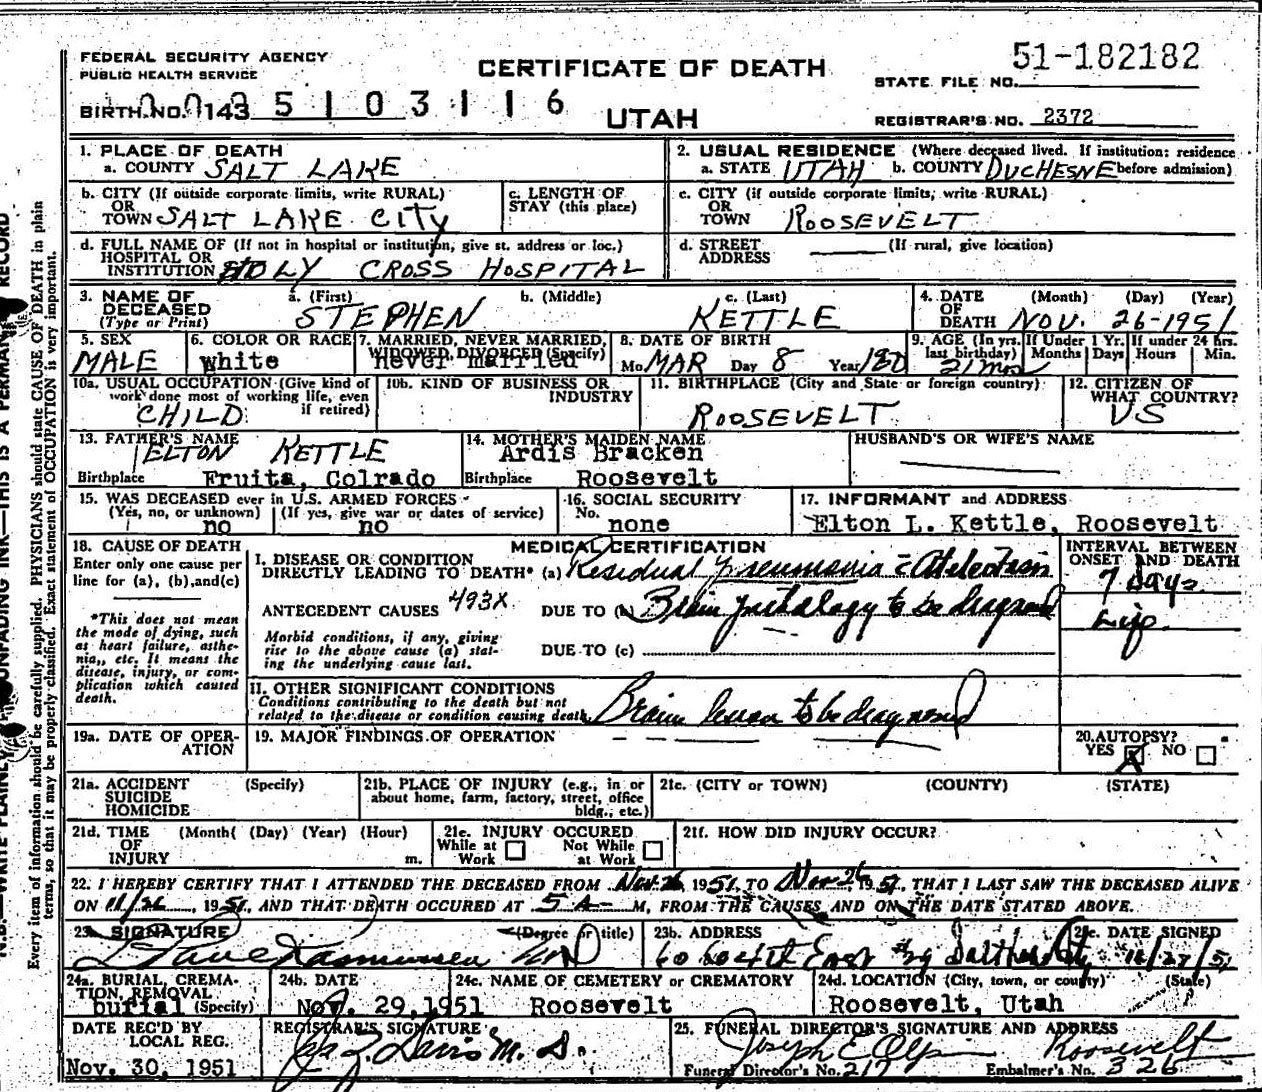 FEDERAL SECURITY AGENCY
PUBLIC HEALTH SERVICE
CERTIFICATE OF DEATH
51-182182
STATE FILE NO.
BIRTH NO. 143 5 1 0 3 1 1 6
UTAH
REGISTRAR'S NO. 2372
1. PLACE OF DEATH
a. COUNTY SALT LAKE
2. USUAL RESIDENCE (Where deceased lived. If institution: residence before admission)
a. STATE UTAH b. COUNTY DUCHESNE
b. CITY (If outside corporate limits, write RURAL)
OR
TOWN SALT LAKE CITY
c. LENGTH OF
STAY (this place)
c. CITY (if outside corporate limits, write RURAL)
OR
TOWN ROOSEVELT
d. FULL NAME OF (If not in hospital or institution, give st. address or loc.)
HOSPITAL OR
INSTITUTION HOLY CROSS HOSPITAL
d. STREET
ADDRESS (If rural, give location)
3. NAME OF
DECEASED
(Type or Print)
a. (First) STEPHEN
b. (Middle)
c. (Last) KETTLE
4. DATE
OF
DEATH
(Month) (Day) (Year)
NOV. 26-1951
5. SEX
MALE
6. COLOR OR RACE
White
7. MARRIED, NEVER MARRIED,
WIDOWED, DIVORCED (Specify)
never married
8. DATE OF BIRTH
Mo. MAR Day 8 Year
9. AGE (In yrs.
last birthday)
If Under 1 Yr.
Months Days
If under 24 hrs.
Hours Min.
21 mos
10a. USUAL OCCUPATION (Give kind of
work done most of working life, even
if retired)
CHILD
10b. KIND OF BUSINESS OR
INDUSTRY
11. BIRTHPLACE (City and State or foreign country)
ROOSEVELT
12. CITIZEN OF
WHAT COUNTRY?
US
13. FATHER'S NAME
ELTON KETTLE
Birthplace Fruita, Colrado
14. MOTHER'S MAIDEN NAME
Ardis Bracken
Birthplace Roosevelt
HUSBAND'S OR WIFE'S NAME
15. WAS DECEASED ever in U.S. ARMED FORCES
(Yes, no, or unknown) (If yes, give war or dates of service)
no no
16. SOCIAL SECURITY
No.
none
17. INFORMANT and ADDRESS
Elton L. Kettle, Roosevelt
18. CAUSE OF DEATH
Enter only one cause per
line for (a), (b), and (c)
*This does not mean
the mode of dying, such
as heart failure, asthe-
nia,, etc. It means the
disease, injury, or com-
plication which caused
death.
MEDICAL CERTIFICATION
I. DISEASE OR CONDITION
DIRECTLY LEADING TO DEATH* (a) Residual pneumonia
ANTECEDENT CAUSES 493X DUE TO (b) Brain pathology to be diagnosed
Morbid conditions, if any, giving
rise to the above cause (a) stat-
ing the underlying cause last.
DUE TO (c)
II. OTHER SIGNIFICANT CONDITIONS
Conditions contributing to the death but not
related to the disease or condition causing death.
Brain lesion to be diagnosed
INTERVAL BETWEEN
ONSET AND DEATH
7 days
Life
19a. DATE OF OPER-
ATION
19. MAJOR FINDINGS OF OPERATION
20. AUTOPSY?
YES X NO
21a. ACCIDENT
SUICIDE
HOMICIDE
(Specify)
21b. PLACE OF INJURY (e.g., in or
about home, farm, factory, street, office
bldg., etc.)
21c. (CITY or TOWN) (COUNTY) (STATE)
21d. TIME
OF
INJURY
(Month( (Day) (Year) (Hour)
m.
21e. INJURY OCCURED
While at Work Not While at Work
21f. HOW DID INJURY OCCUR?
22. I HEREBY CERTIFY THAT I ATTENDED THE DECEASED FROM Nov. 26, 1951, TO Nov 26 1951, THAT I LAST SAW THE DECEASED ALIVE
ON 11/26, 1951, AND THAT DEATH OCCURED AT 5 A M, FROM THE CAUSES AND ON THE DATE STATED ABOVE.
23. SIGNATURE (Degree or title)
Rasmussen MD
23b. ADDRESS
23c. DATE SIGNED
24a. BURIAL, CREMA-
TION, REMOVAL
(Specify)
burial
24b. DATE
Nov. 29, 1951
24c. NAME OF CEMETERY or CREMATORY
Roosevelt
24d. LOCATION (City, town, or county) (State)
Roosevelt, Utah
DATE REC'D BY
LOCAL REG.
Nov. 30, 1951
REGISTRAR'S SIGNATURE
Davis M. D.
25. FUNERAL DIRECTOR'S SIGNATURE AND ADDRESS
Joseph E Olpin Roosevelt
Funeral Director's No. 217 Embalmer's No. 326
N.B.—WRITE PLAINLY UNFADING INK—THIS IS A PERMANENT RECORD
Every item of information should be carefully supplied. PHYSICIANS should state CAUSE OF DEATH in plain
terms, so that it may be properly classified. Exact statement of OCCUPATION is very important.